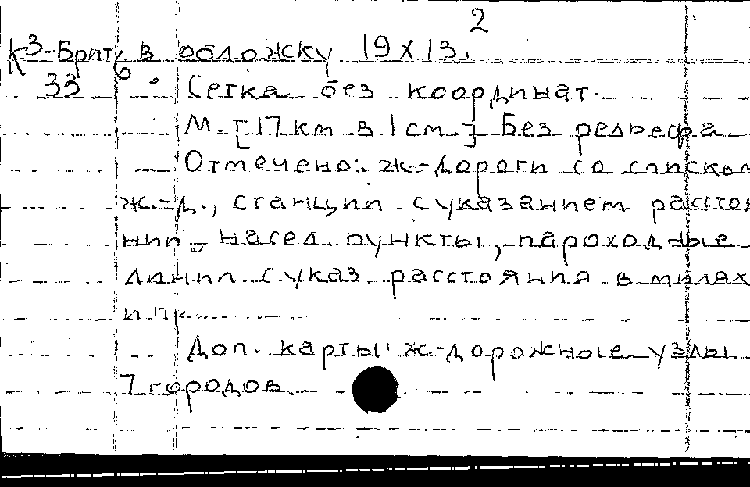 2
К 3-Брит. в обложку 19 х 13.
33 6 Сетка без координат.
М-[17 км в 1 см.] Без рельефа
Отмечено: ж-дороги со списком
ж.-д., станции с указанием расстоя
нии, насел пункты, пароходные
линии с указ. расстояния в милях
и пр.
Доп. карты: ж-дорожные узлы
7 городов